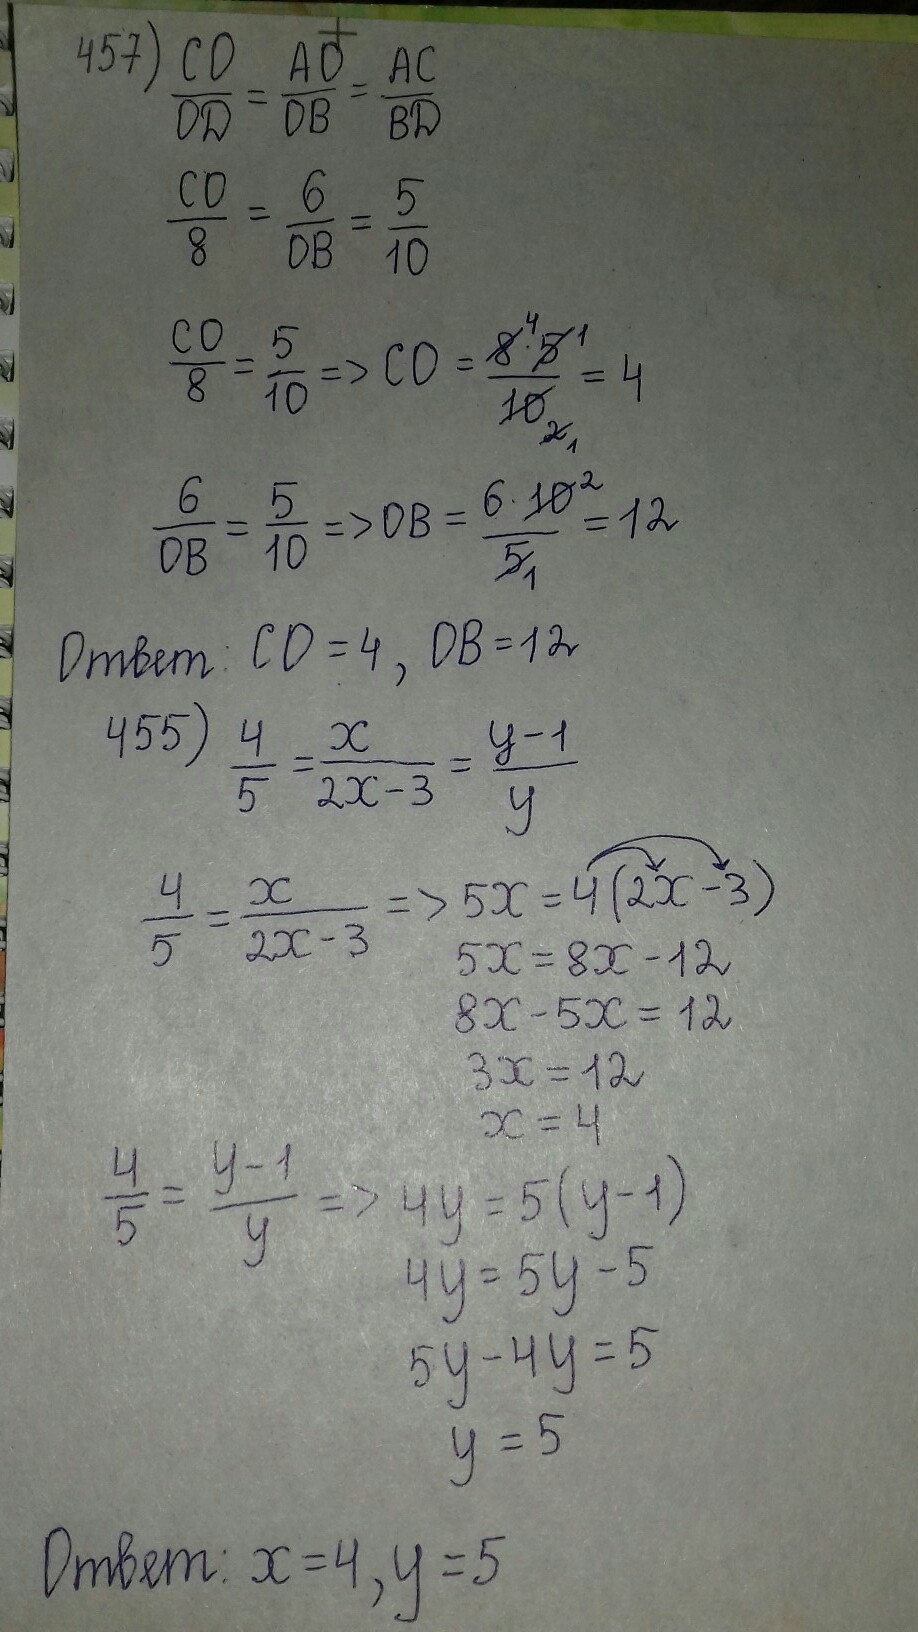 457) CO/OD = AO/OB = AC/BD
CO/8 = 6/OB = 5/10
CO/8 = 5/10 => CO = 8⁴·5¹/10₂₁ = 4
6/OB = 5/10 => OB = 6·10²/5₁ = 12
Ответ: CO = 4, OB = 12
455) 4/5 = x/2x-3 = y-1/y
4/5 = x/2x-3 => 5x = 4(2x-3)
5x = 8x - 12
8x - 5x = 12
3x = 12
x = 4
4/5 = y-1/y => 4y = 5(y-1)
4y = 5y - 5
5y - 4y = 5
y = 5
Ответ: x = 4, y = 5